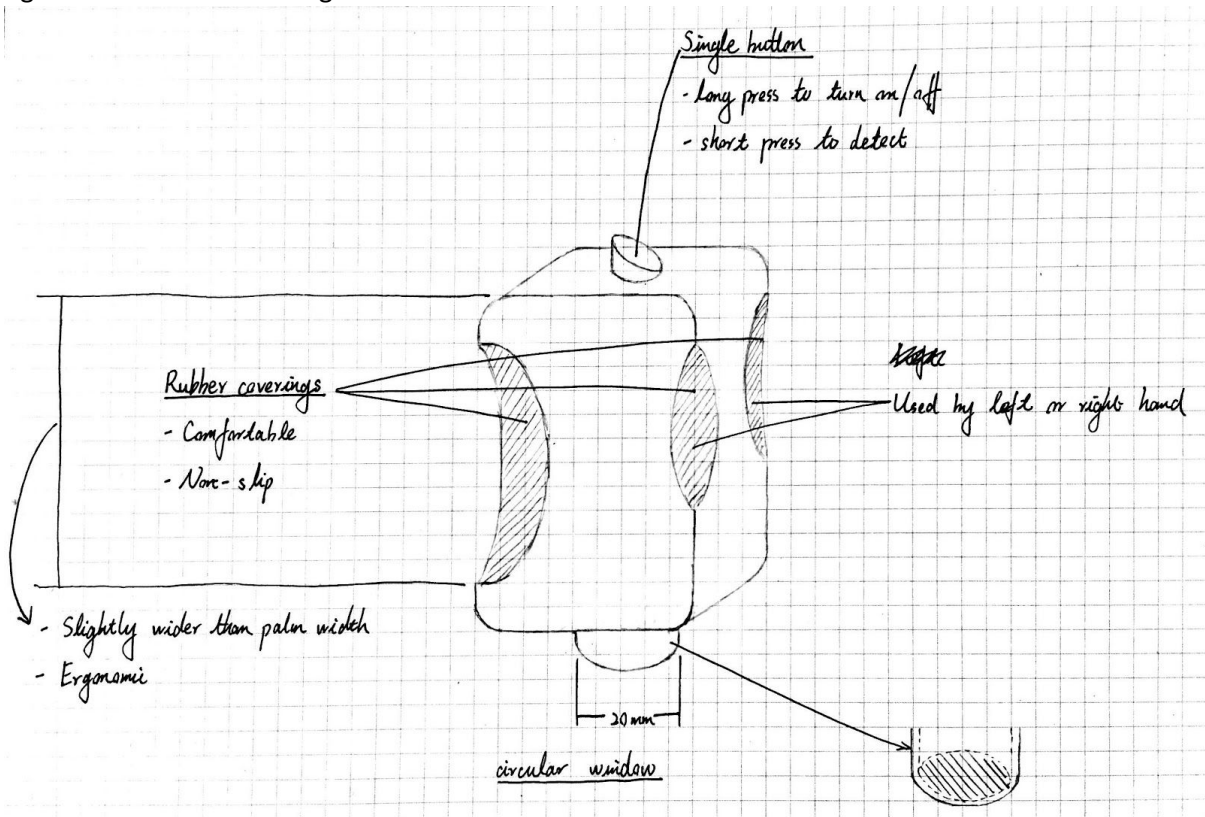 Single button
- long press to turn on/off
- short press to detect
Rubber coverings
- Comfortable
- Non-slip
Used by left or right hand
- Slightly wider than palm width
- Ergonomic
20 mm
circular window